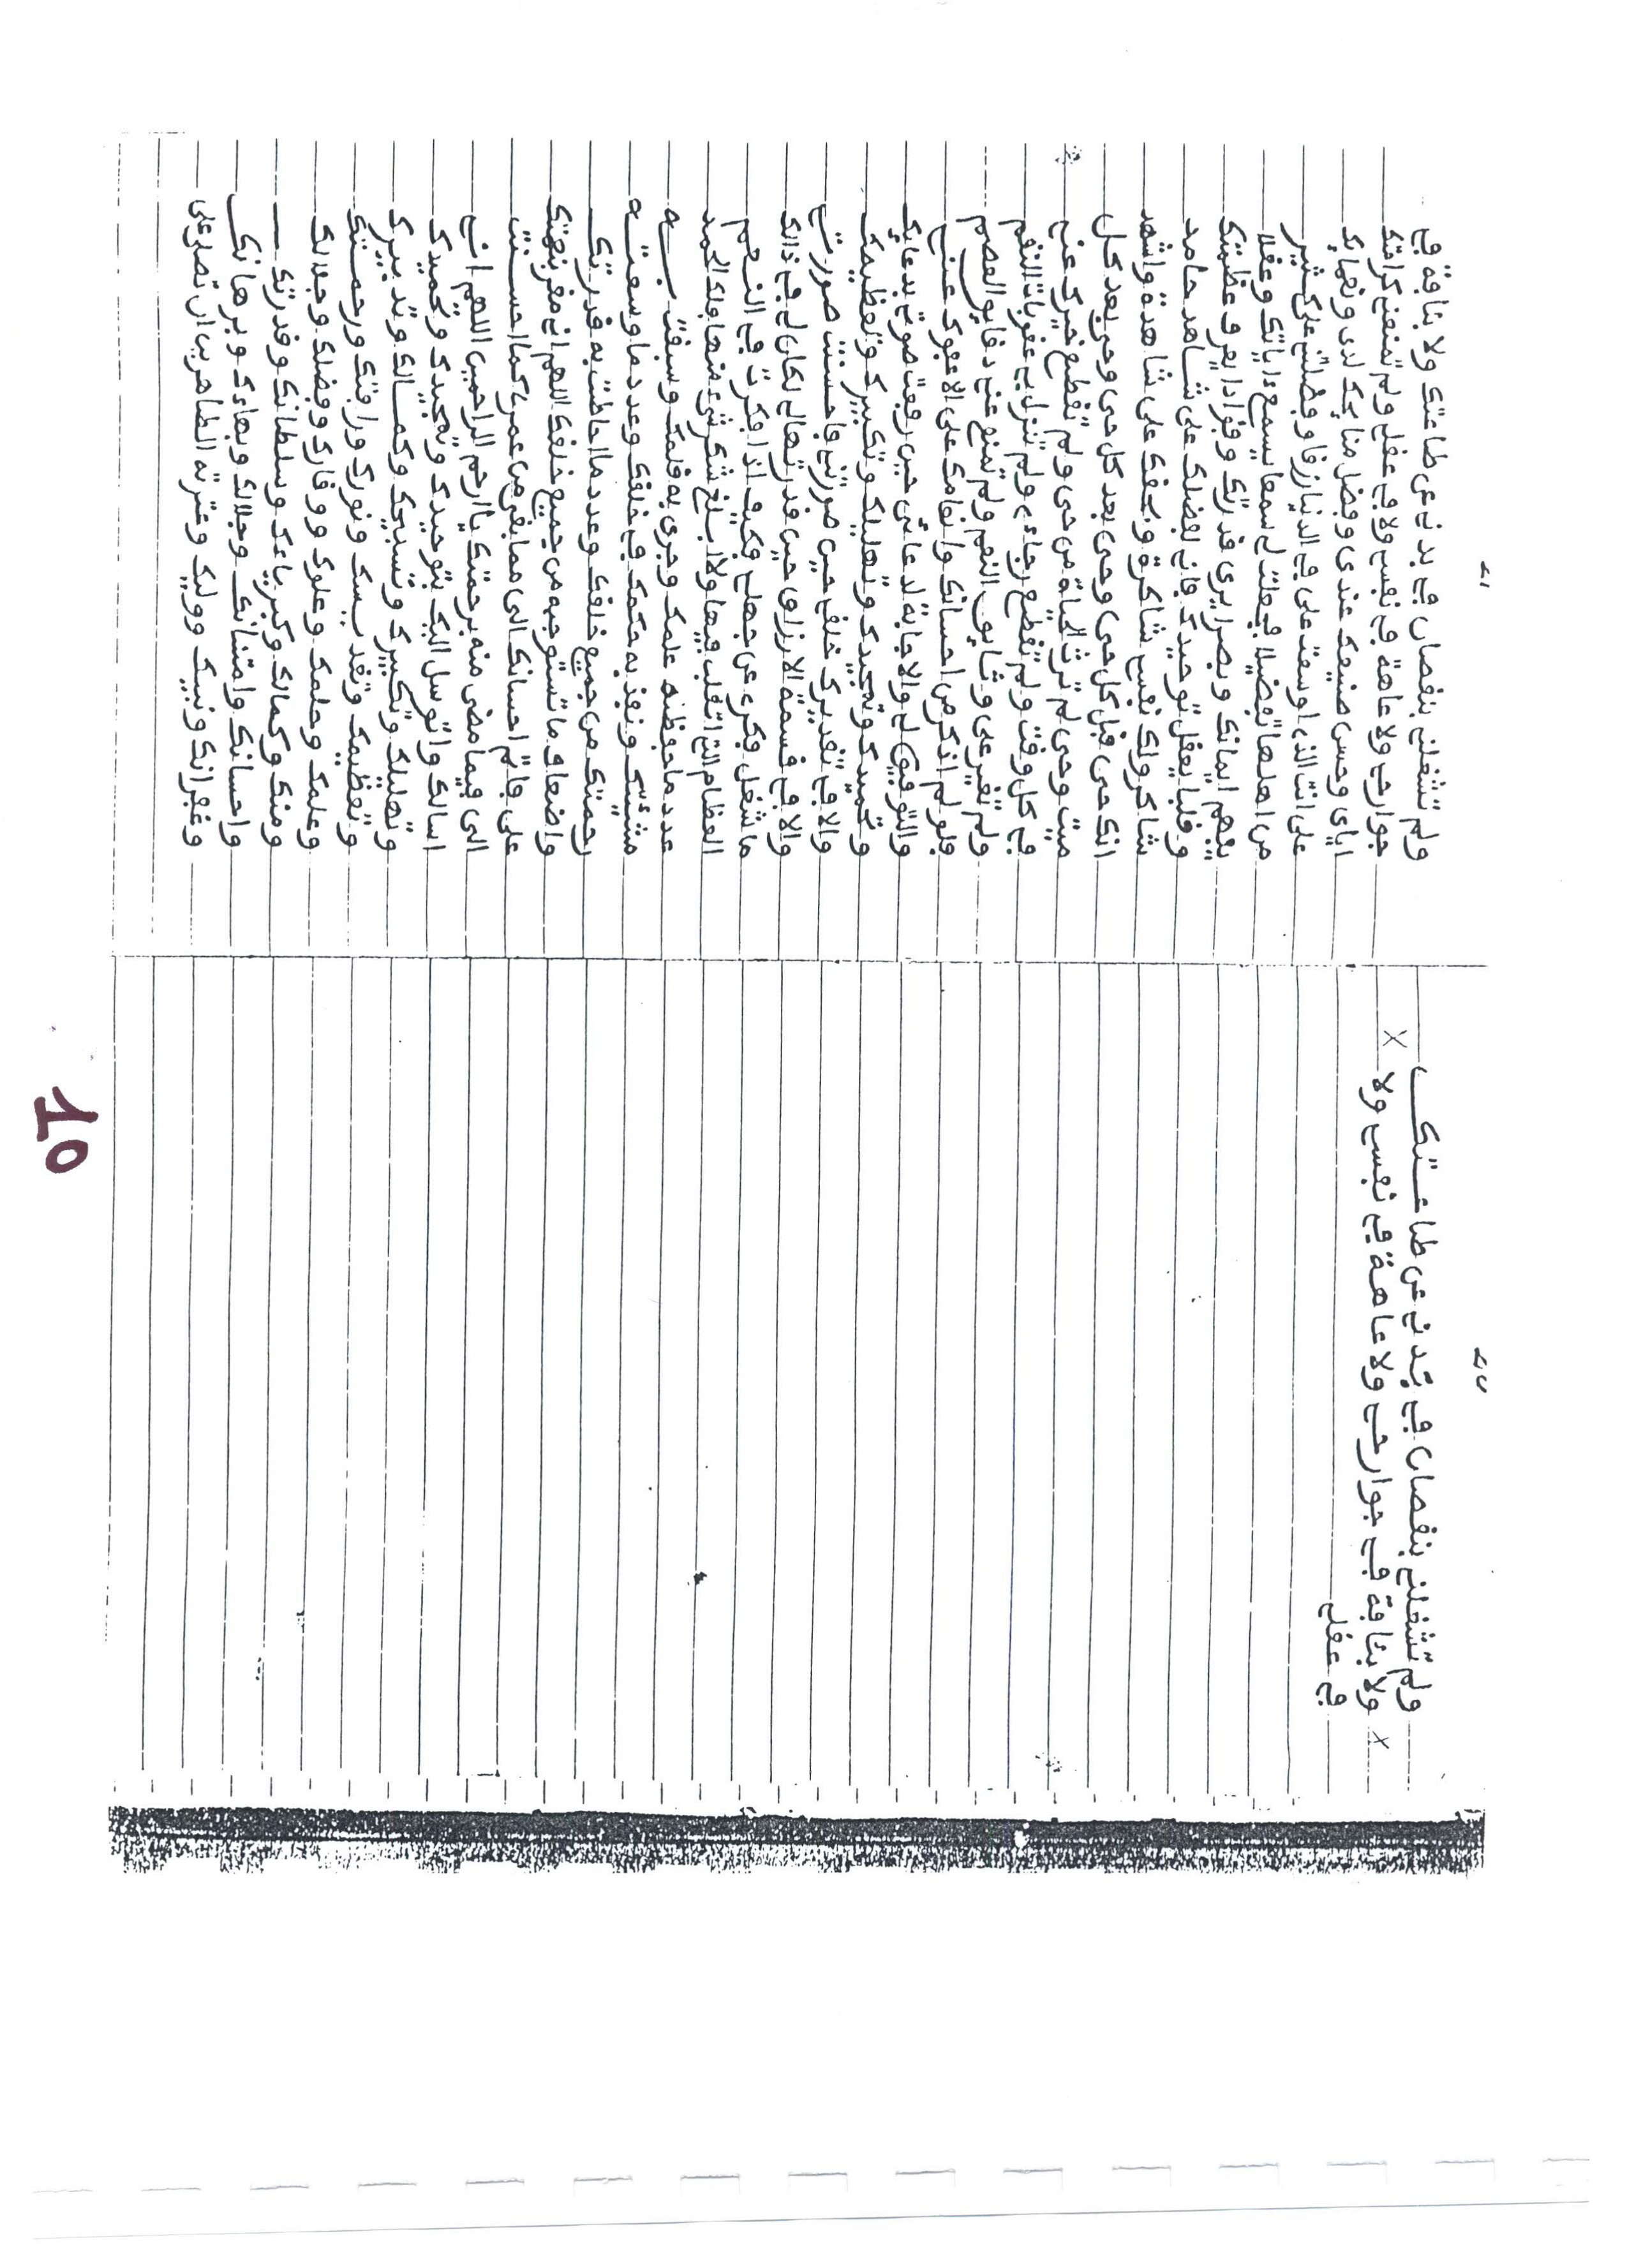 ولم تشغلني بنقصان في بدني عن طاعتك
× ولا بئافة في جوارحي ولا عاهة في نفسي ولا ×
في عقلي
ولم تشغلني بنقصان في بدني عن طاعتك ولا بئافة في
جوارحي ولا عاهة في نفسي ولا في عقلي ولم تمنعني كرامتك
اياي وحسن صنيعك عندي وفضل منايحك لدي ونعمايك
علي انت الذي اوسعت علي في الدنيا رزقا وفضلتني على كثير
من اهلها تفضيلا فجعلت لي سمعا يسمع ءاياتك وعقلا
يفهم ايمانك وبصرا يرى قدرتك وفؤادا يعرف عظمتك
وقلبا يعقل توحيدك فاني لفضلك علي شاهد حامد
شاكر ولك نفسي شاكرة وبحقك علي شاهدة واشهد
انك حي قبل كل حي وحي بعد كل حي وحي بعد كل
ميت وحي لم ترث الحياة من حي ولم تقطع خيرك عني
في كل وقت ولم تقطع رجاءي ولم تنزل بي عقوبات النقم
ولم تغير علي وثايق النعم ولم تمنع عني دقايق العصم
فلو لم اذكر من احسانك وانعامك علي الا عفوك عني
والتوفيق لي والاجابة لدعائي حين رفعت صوتي بدعايك
وتحميدك وتمجيدك وتهليلك وتكبيرك وتعظيمك
والا في تقديرك خلقي حين صورتني فاحسنت صورتي
والا في قسمة الارزاق حين قدرتها لي لكان لي في ذالك
ما شغل فكري عن جهلي فكيف اذا فكرت في النعم
العظام التي اتقلب فيها ولا ابلغ شكر شيء منها فلك الحمد
عدد ما حفظه علمك وجرى به قلمك وسبقت به
مشيئتك ونفذ به حكمك في خلقك وعدد ما وسعته
رحمتك من جميع خلقك وعدد ما احاطت به قدرتك
واضعاف ما تستوجبه من جميع خلقك اللهم اني مقر بنعمتك
علي فاتمم احسانك الي مما بقي من عمري كما احسنت
الي فيما مضى منه برحمتك يا ارحم الراحمين اللهم اني
اسالك واتوسل اليك بتوحيدك وتمجيدك وتحميدك
وتهليلك وتكبيرك وتسبيحك وكمالك وتدبيرك
وتعظيمك وتقديسك ونورك ورافتك ورحمتك
وعلمك وحلمك وعلوك ووقارك وفضلك وجلالك
ومنك وكمالك وكبرياءك وسلطانك وقدرتك
واحسانك وامتنانك وجلالك وبهاءك وبرهانك
وغفرانك ونبيك ووليك وعترته الطاهرين ان تصلي على
10